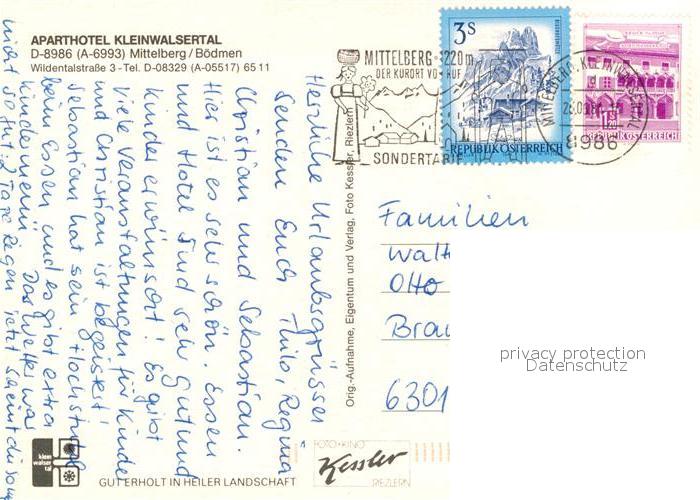 APARTHOTEL KLEINWALSERTAL
D-8986 (A-6993) Mittelberg / Bödmen
Wildentalstraße 3 - Tel. D-08329 (A-05517) 65 11
MITTELBERG 1220m
DER KURORT VOR
SONDERTARIF
3S
REPUBLIK ÖSTERREICH
REPUBLIK ÖSTERREICH
8986
Herzliche Urlaubsgrüsse
senden Euch Thilo, Regina
Christian und Sebastian.
Hier ist es sehr schön. Essen
und Hotel sind sehr gut und
Kinder erwünscht! Es gibt
viele Veranstaltungen für Kinder
und Christian ist begeistert!
Sebastian hat sein Hochstuhl
beim Essen und es gibt extra
Kindermenü. Das Wetter war
nicht so gut. 2 Tage Regen jetzt scheint die Sonn
Orig.-Aufnahme, Eigentum und Verlag, Foto Kessler, Riezlern
Familien
Walt
Otto
Brau
6301
privacy protection
Datenschutz
klein
walser
tal
GUT ERHOLT IN HEILER LANDSCHAFT
FOTO•KINO
Kessler
RIEZLERN